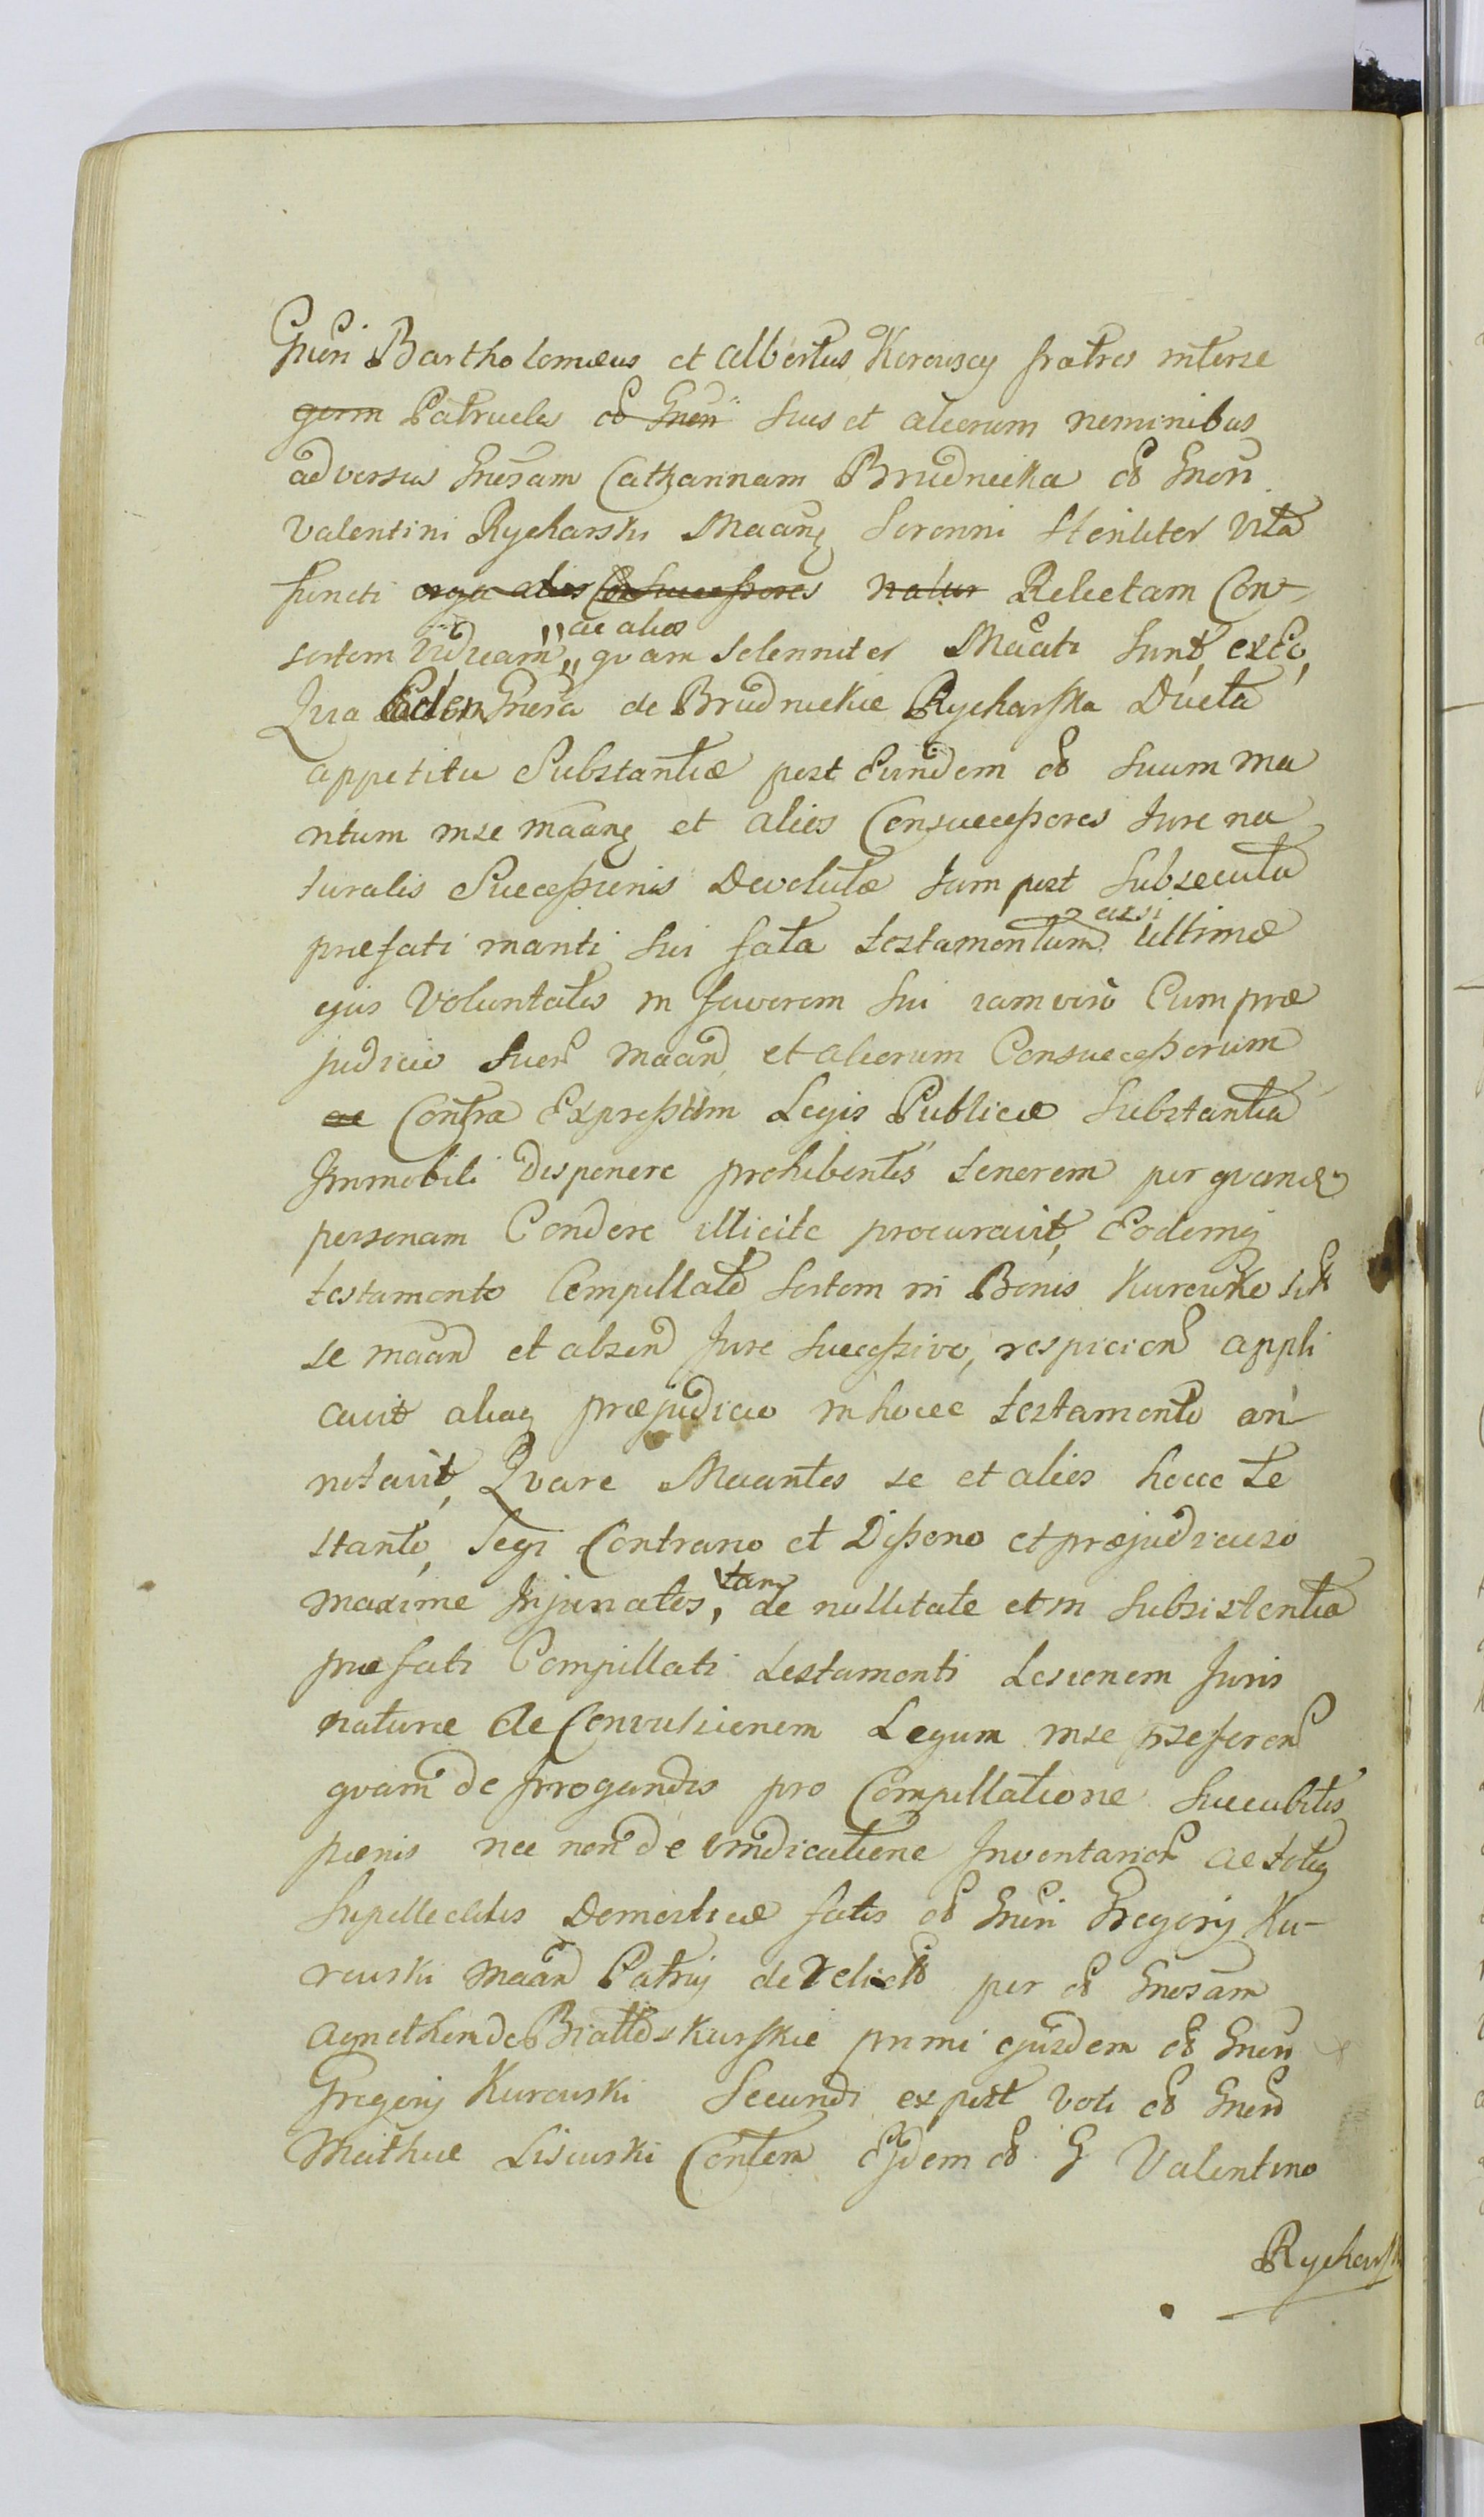 Gnēri Bartholomæus et Albertus Kurowscy fratres interse
germ Patrueles olÿ Gnēri suis et aliorum nominibus
adversus Gnēsam Catharinam Brudnicka olÿ Gnēri
Valentini Rycharski Maanq Sororini Steriliter Vita
functi erga alios Consuccessores natur Relictam Con-
sortem Viduam „ ac alios quam solenniter Maati sunt, exEo,
Qvia Eadem Gnēsa de Brudnickie Rycharska Ducta
appetitu Substantiæ post Eundem olÿ suum ma
ritum inse maanq et alios Consuccessores Jure na
turalis Successionis Devolutæ Jam post Subsecuta
præfati mariti sui fata testamentum quasi Ultimæ
ejus Voluntatis in favorem sui iam vero Cum præ
judicio Suor maand et aliorum Consuccessorum
ac Contra Expressum Legis Publicæ Substantia
Immobili disponere prohibentis tenorem per qvand
personam Condere illicite procuravit, Eodemq
testamento Compillato Sortem in Bonis Kurowko
se maand et absend Jure Successivo, respicien appli
cavit aliaq præjudicio in hocce testamento an-
notavit, Qvare Maantes se et alios hocce Te
stanto, Legi Contrario et Dissono et præjudicioso
maxime Injuriatos, tam de nullitate et in Subsistentia
præfati Compillati testamenti Lesionem Juris
naturæ ac Convulsionem Legum inse præseferen
qvam de Irrogandis pro Compillatione Succubitis
poenis nec non de vindicatione Inventarior ac totiq
Supellectilis Domesticæ fatis olÿ Gnēri Gregorij Ku-
rowski maand Patrui derelict per olÿ Gnēsam
Agnethem de Białłoskurskie primi ejusdem olÿ Gnēri
Gregorij Kurowski Secundi expost voti olÿ Gnēri
Mathiæ Lisowski Contem Ejdem olÿ G Valentino
Rycharsk